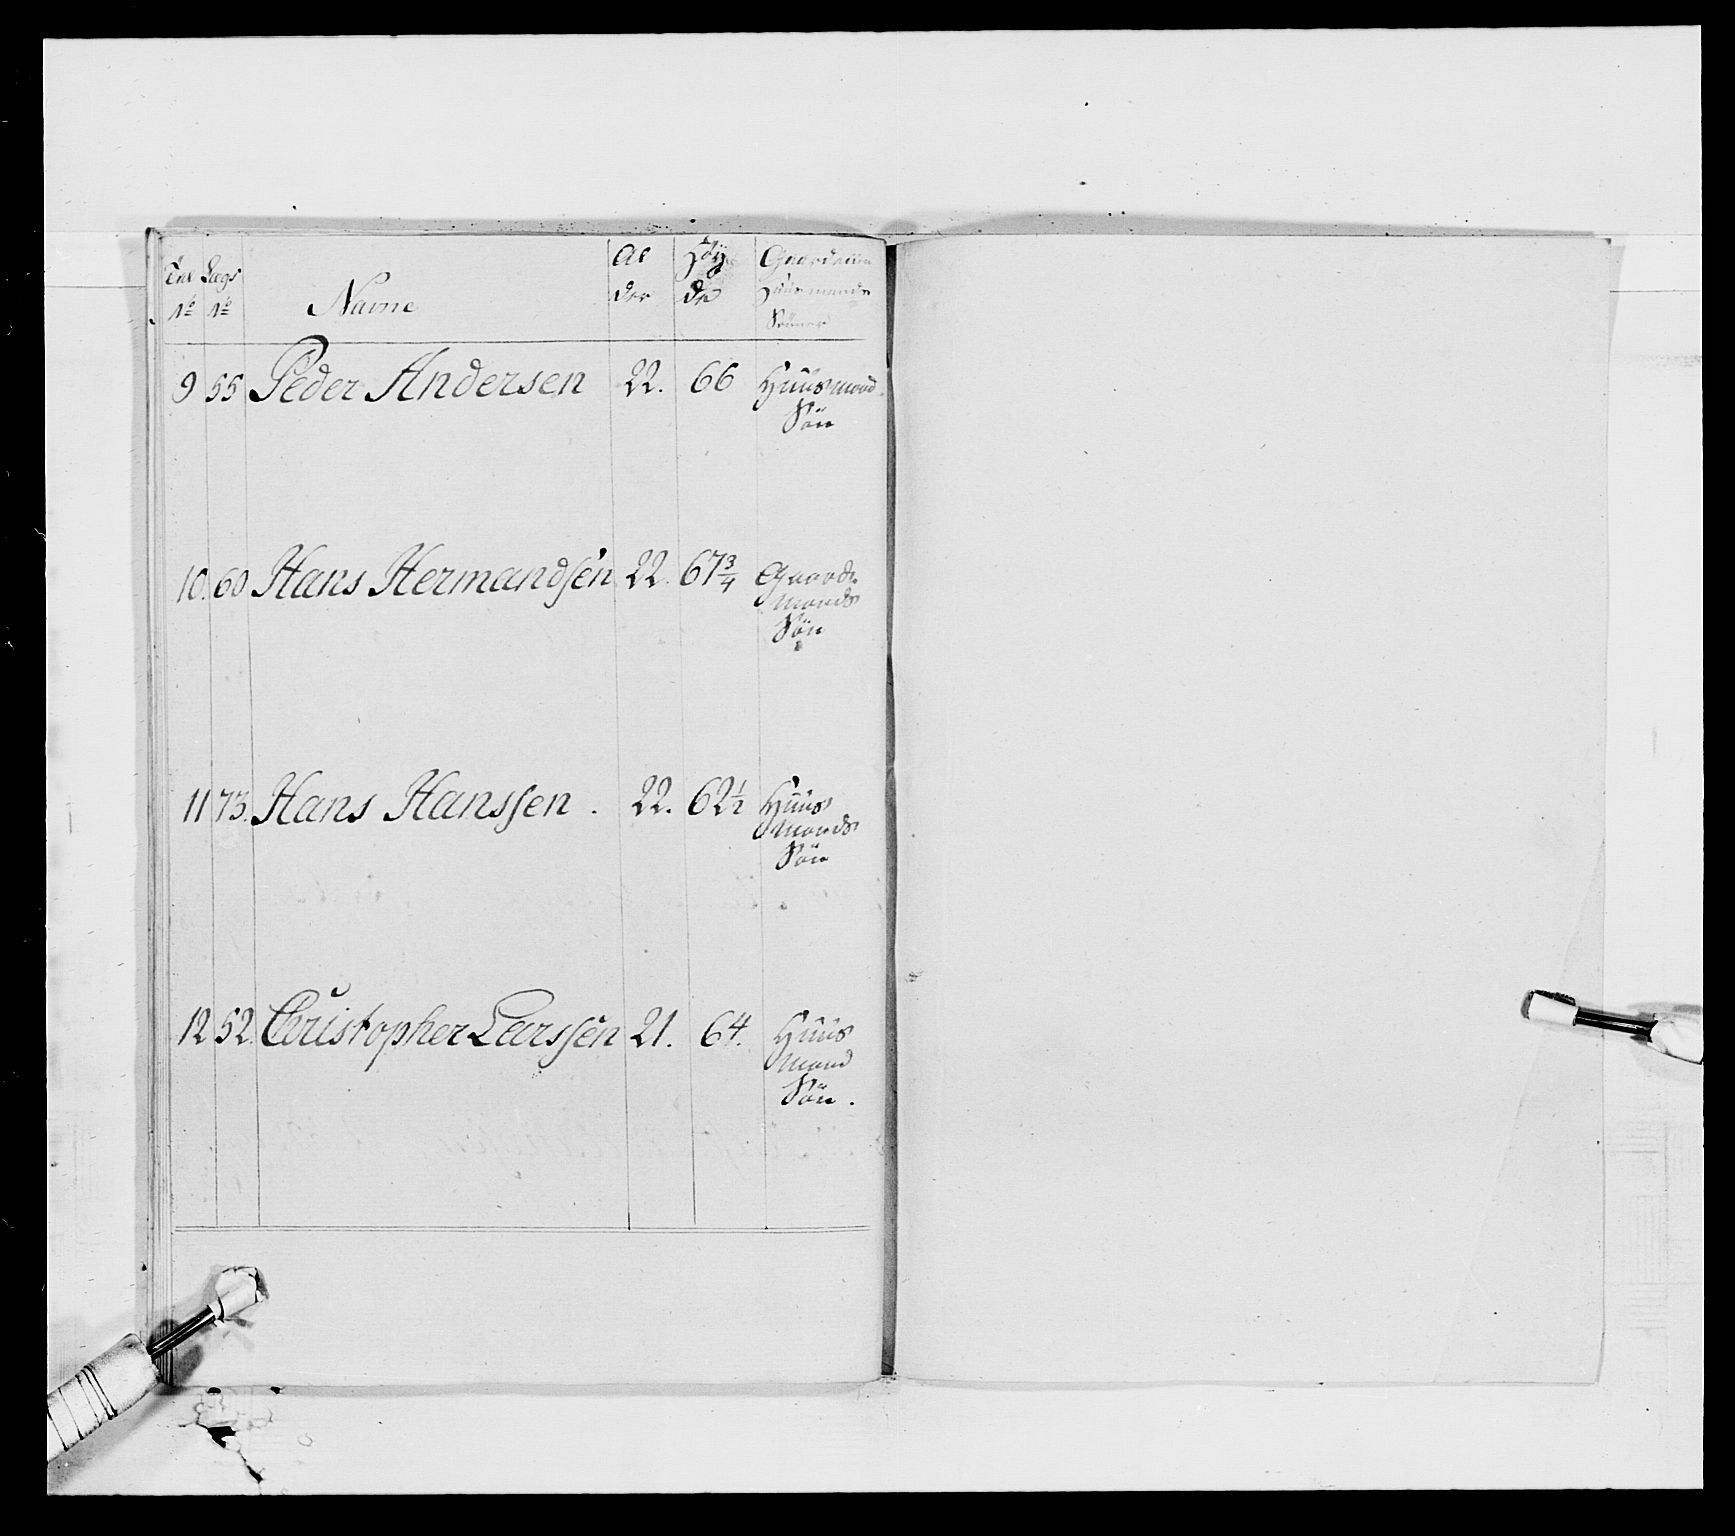 Tal Lægs Al Høy Gaard eller
No No Name der de Huusmands
Sönner
9 55 Peder Andersen 22. 66 Huusmand
Sön
10. 60 Hans Hermandsen 22. 67 3/4 Gaard
mands
Sön
11 73. Hans Hanssen . 22. 62 1/2 Huus
mands
Sön
12 52. Christopher Larssen 21. 64. Huus
mand
Sön .